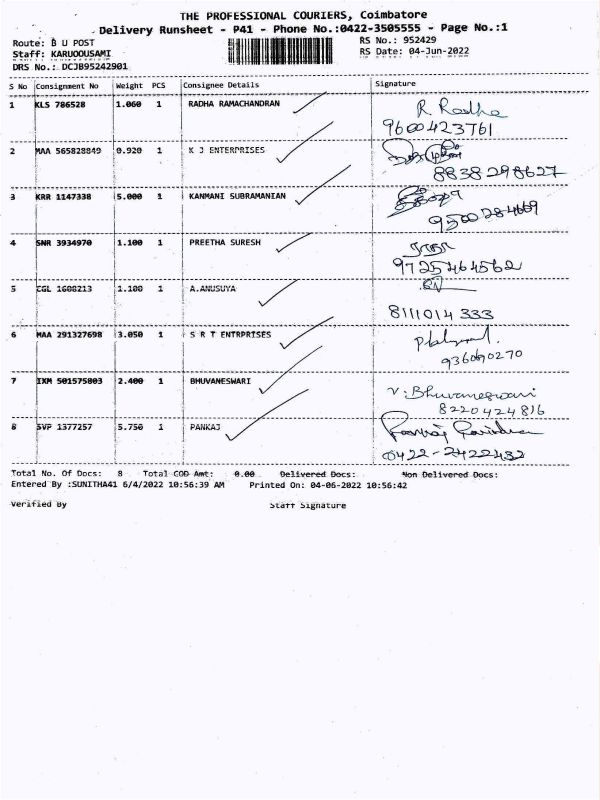 THE PROFESSIONAL COURIERS, Coimbatore
Delivery Runsheet - P41 - Phone No.:0422-3505555 - Page No.:1
Route: B U POST
RS No.: 952429
Staff: KARUOOUSAMI
RS Date: 04-Jun-2022
DRS No.: DCJB95242901
S No Consignment No Weight PCS Consignee Details Signature
1 KLS 786528 1.060 1 RADHA RAMACHANDRAN R. Radha
9600423761
2 MAA 565828849 0.920 1 K J ENTERPRISES
8838298627
3 KRR 1147338 5.000 1 KANMANI SUBRAMANIAN
9500284669
4 SNR 3934970 1.100 1 PREETHA SURESH
9725464562
5 CGL 1608213 1.100 1 A.ANUSUYA
8111014333
6 MAA 291327698 3.050 1 S R T ENTRPRISES
936090270
7 IXM 501575803 2.400 1 BHUVANESWARI V. Bhuvaneswari
8220424816
8 SVP 1377257 5.750 1 PANKAJ Pankaj
0422-2422432
Total No. Of Docs: 8 Total COD Amt: 0.00 Delivered Docs: Non Delivered Docs:
Entered By :SUNITHA41 6/4/2022 10:56:39 AM Printed On: 04-06-2022 10:56:42
Verified By Staff Signature